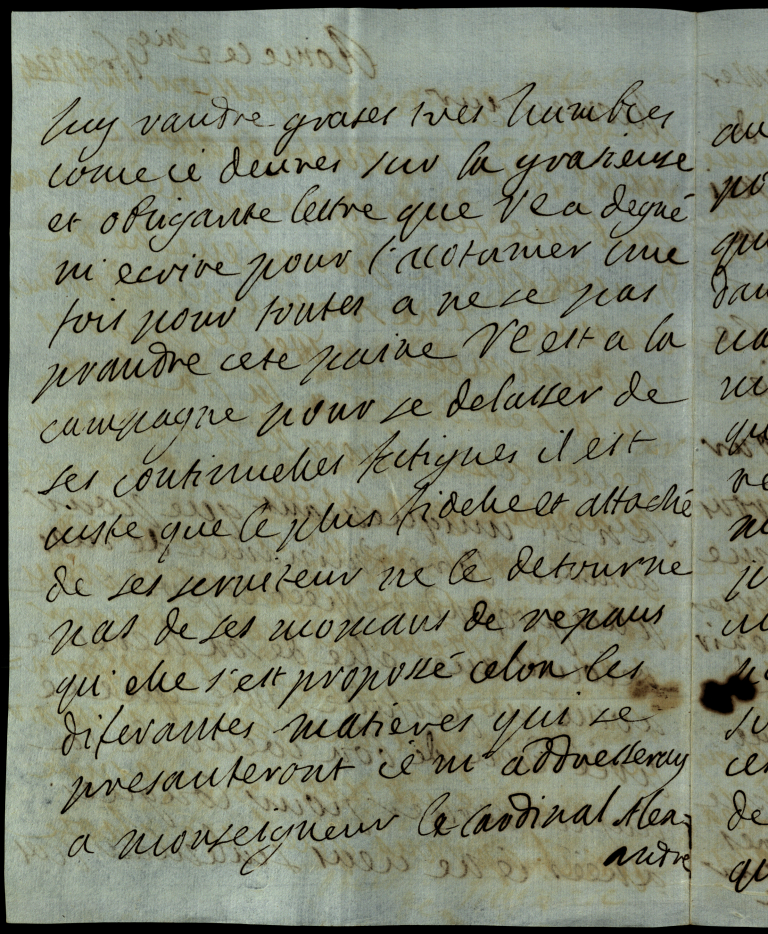 luy randre grases tres humbles
come ie deures sur la gratieuse
et obligante lettre que VE a degné
m'ecrire pour l'acotumer une
fois pour toutes a ne se pas
prandre cete paine VE est a la
campagne pour se delasser de
ses continuelles fatigues il est
iuste que le plus fidelle et attaché
de ses serviteur ne le detourne
pas de ses momans de repaus
qu'elle s'est propossé celon les
diferantes matieres qui se
presanteront ie m'addresseray
a monseigneur le Cardinal Alea=
andre